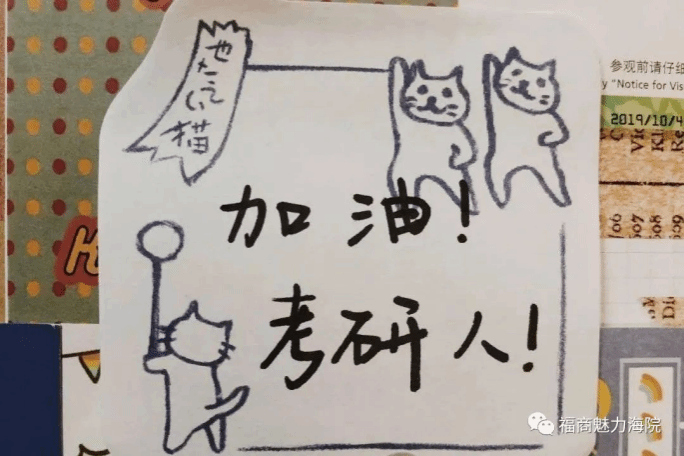 猫
加油!
考研人!
参观前请仔细
"Notice for Vis
2019/10/4
福商魅力海院